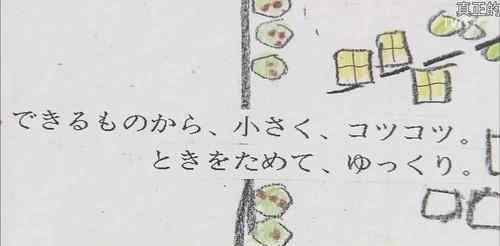 真正的
できるものから、小さく、コツコツ。
ときをためて、ゆっくり。